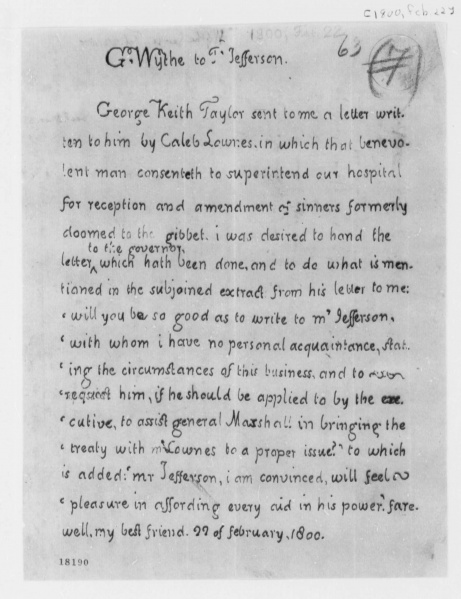 [1800, Feb 22]
1800, Feb. 22
63
7
G. Wythe to T. Jefferson.
George Keith Taylor sent to me a letter writ-
ten to him by Caleb Lownes, in which that benevo-
lent man consenteth to superintend our hospital
for reception and amendment of sinners formerly
doomed to the gibbet. i was desired to hand the
to the governor,
letter ^ which hath been done, and to do what is men-
tioned in the subjoined extract from his letter to me:
'will you be so good as to write to mr Jefferson,
'with whom i have no personal acquaintance, stat-
'ing the circumstances of this business, and to
'request him, if he should be applied to by the exe-
'cutive, to assist general Marshall in bringing the
'treaty with mr Lownes to a proper issue?' to which
is added: 'mr Jefferson, i am convinced, will feel
'pleasure in affording every aid in his power.' fare-
well, my best friend. 22 of february, 1800.
18190